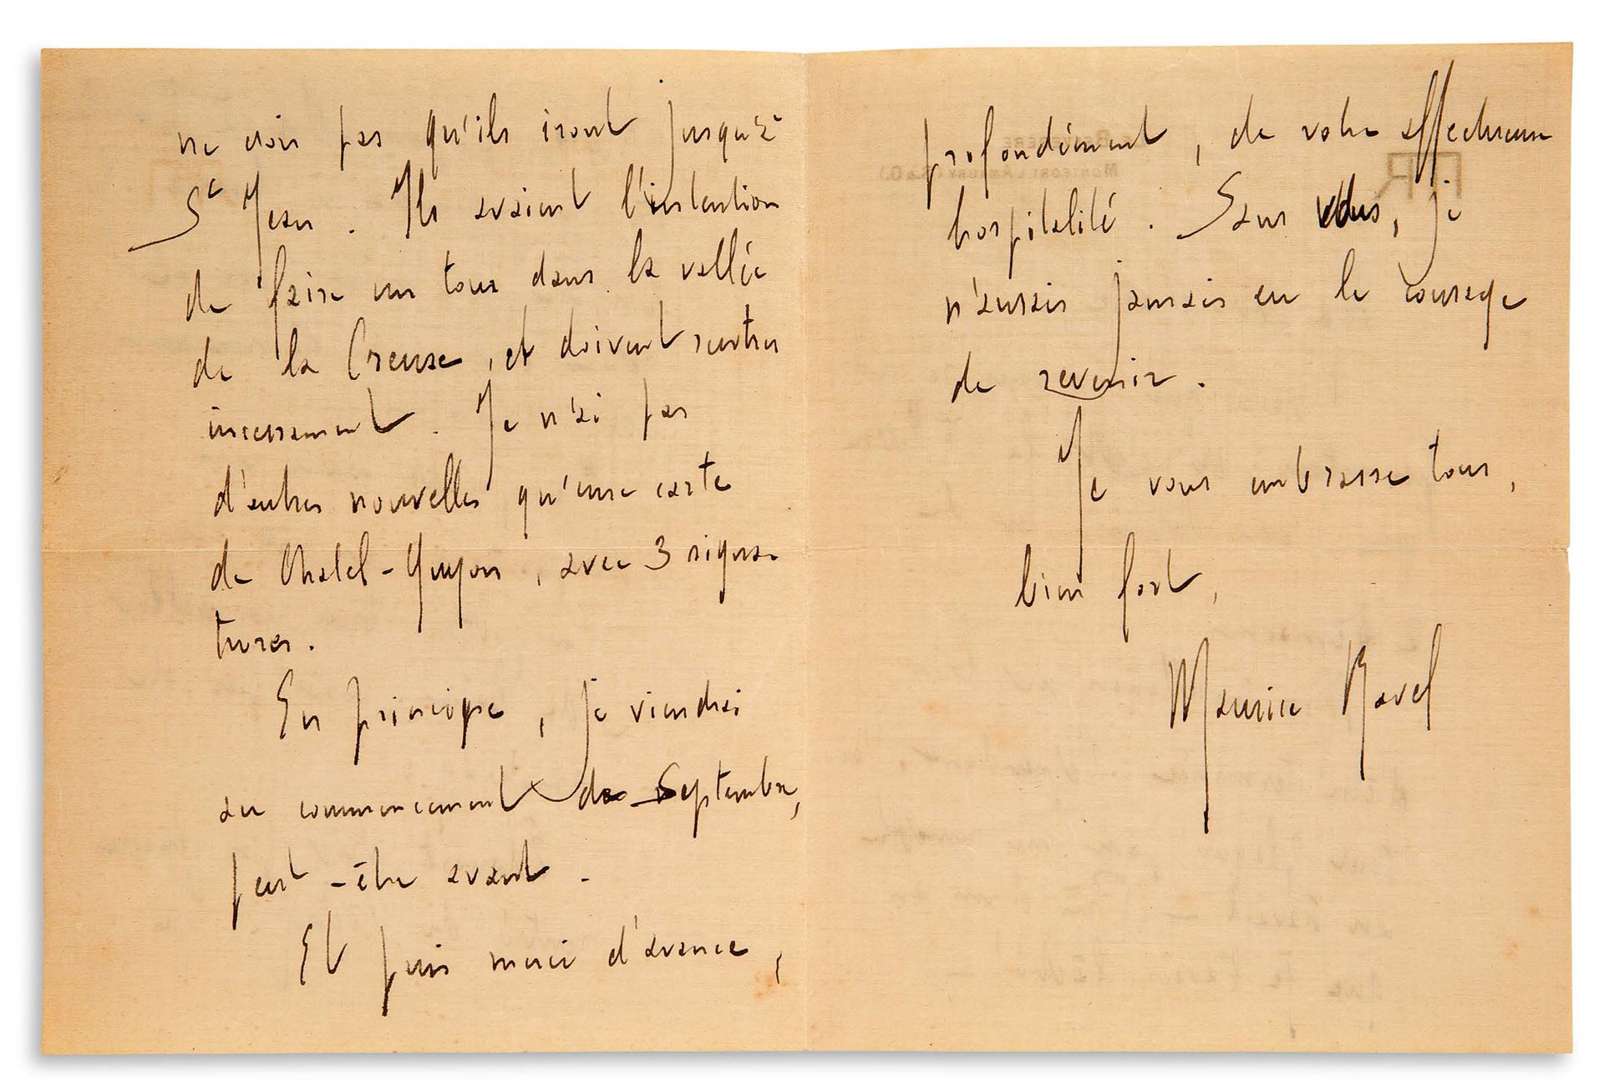 ne crois pas qu'ils iront jusqu'à
St Jean. Ils avaient l'intention
de faire un tour dans la vallée
de la Creuse, et doivent rentrer
incessamment. Je n'ai pas
d'autres nouvelles qu'une carte
de Chatel-Guyon, avec 3 signa-
tures.
En principe, je viendrai
au commencement de Septembre,
peut-être avant.
Et puis merci d'avance,
profondément, de votre affectueuse
hospitalité. Sans vous, je
n'aurais jamais eu le courage
de revenir.
Je vous embrasse tous,
bien fort,
Maurice Ravel